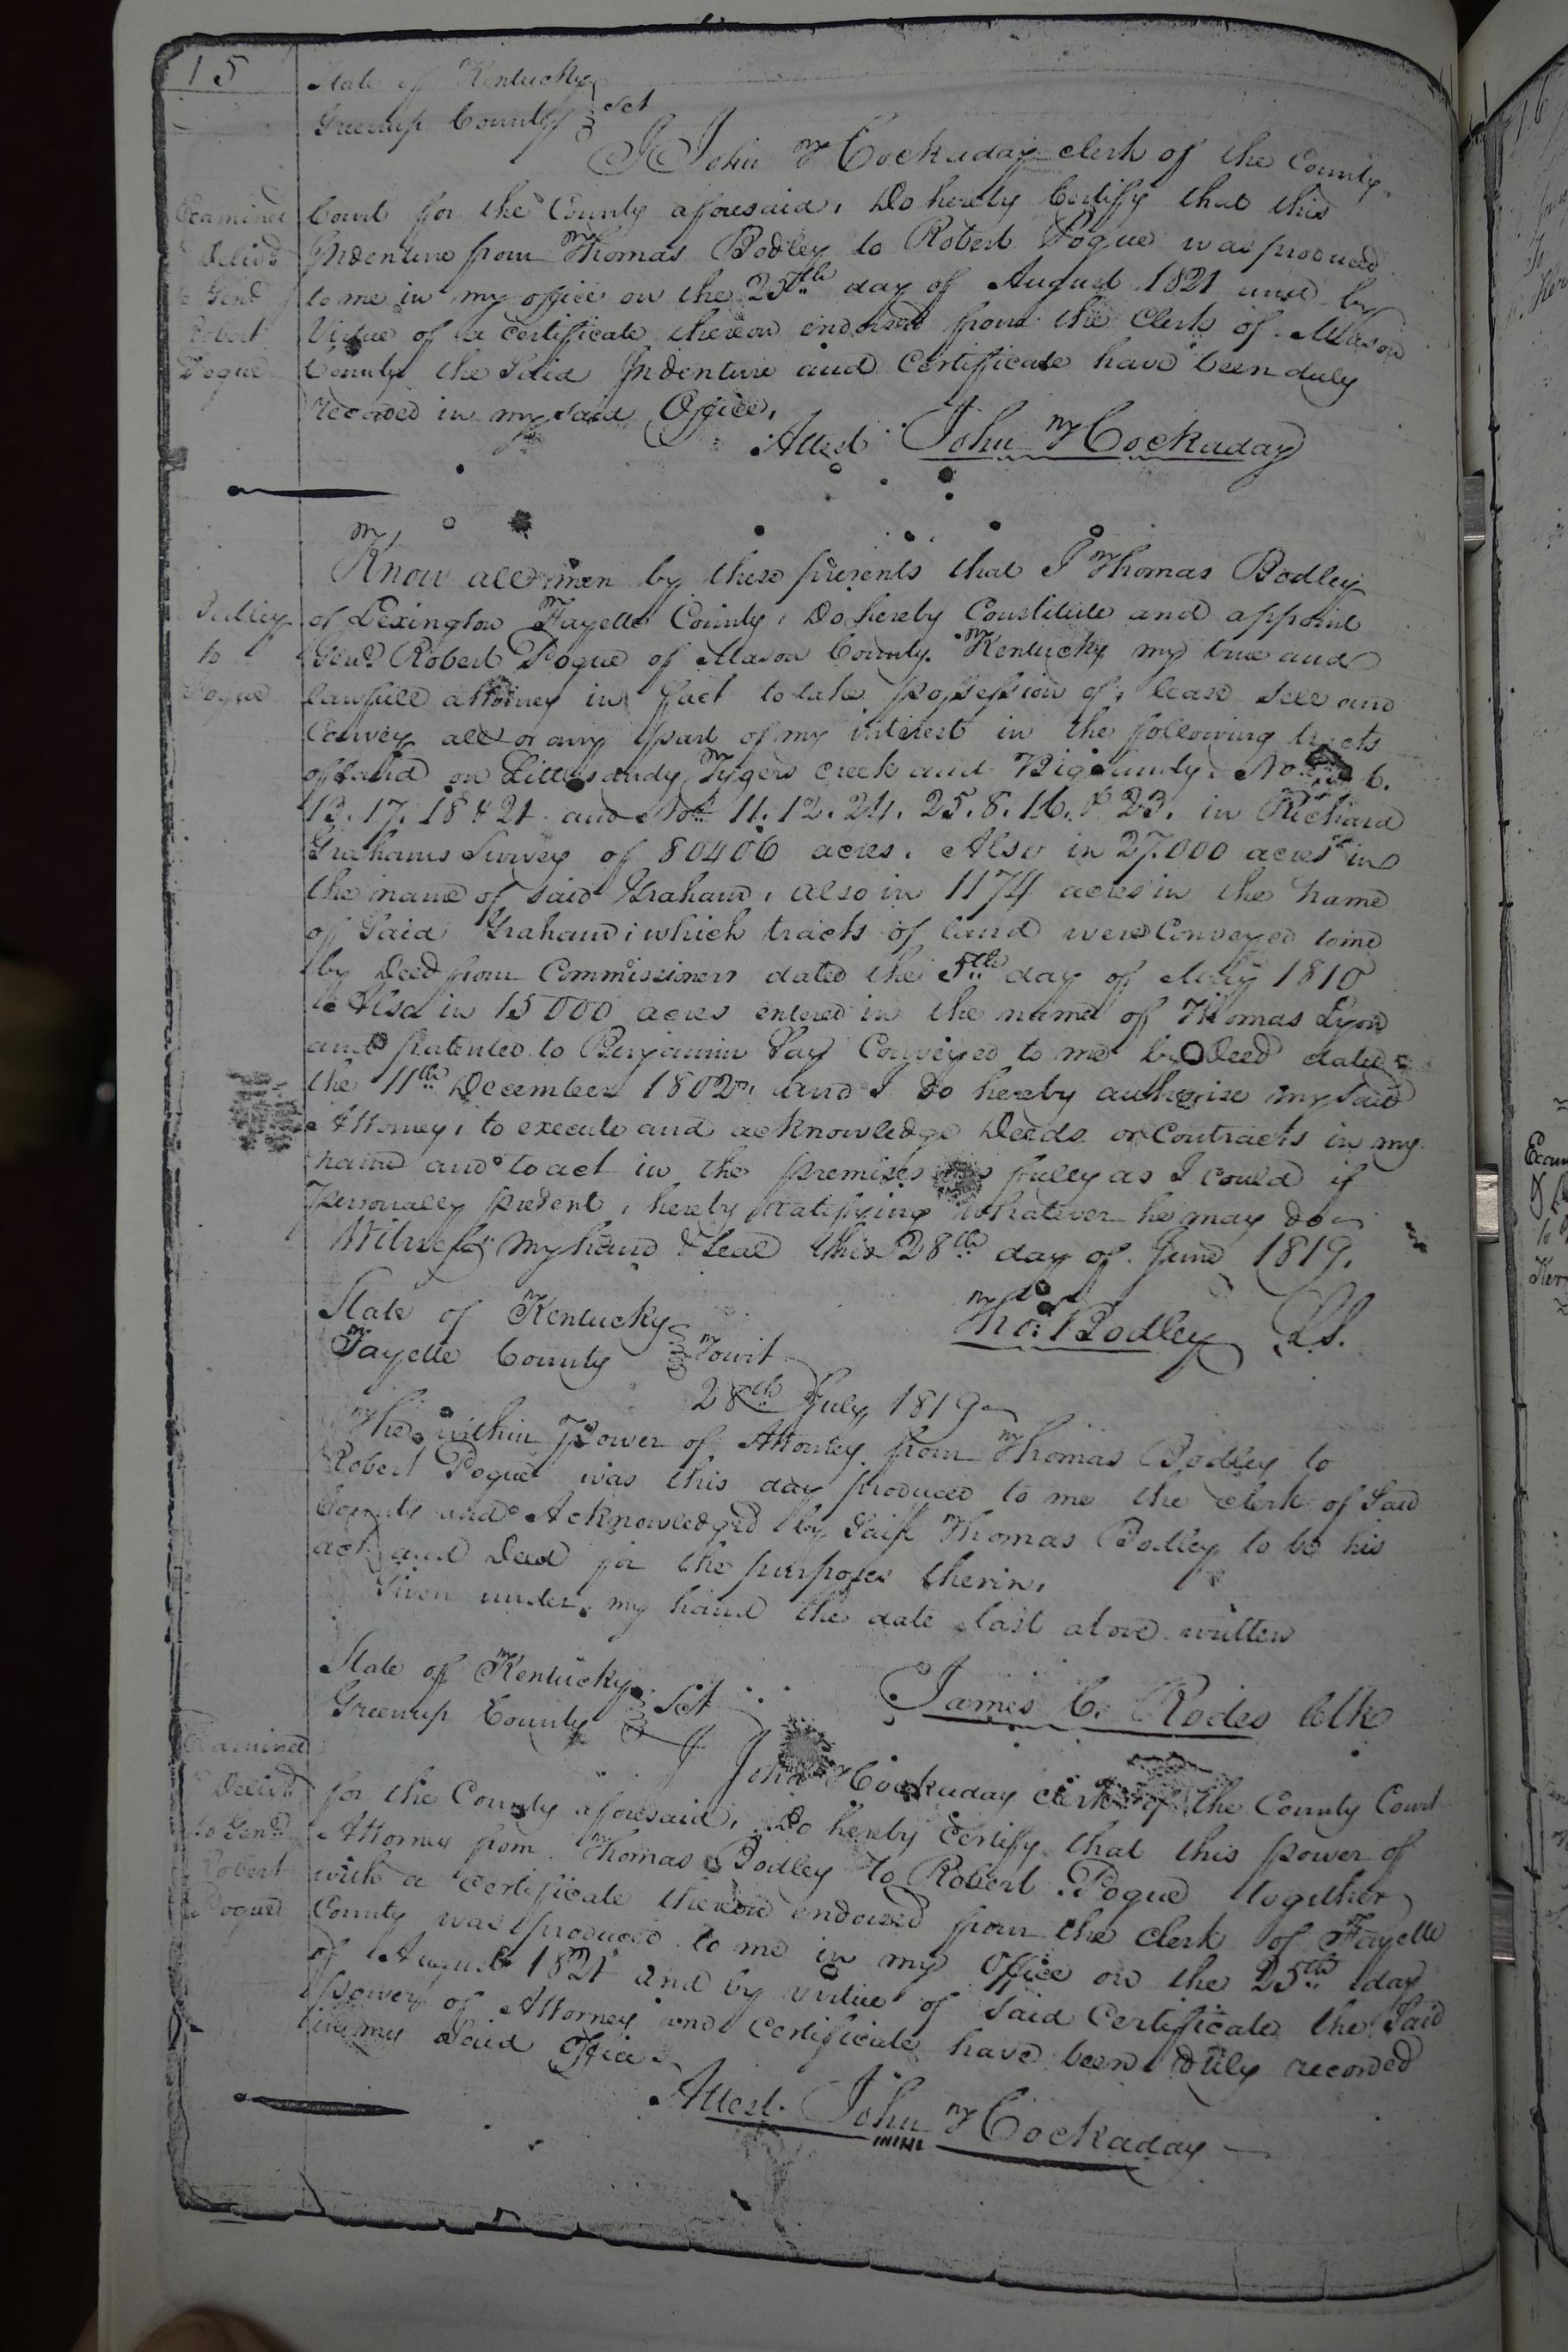 15
State of Kentucky
Greenup County Sct
I John Hockaday clerk of the County
Court for the County aforesaid, Do hereby Certify that this
Indenture from Thomas Bodley to Robert Pogue was produced
to me in my office on the 25th day of August 1821 and by
Virtue of a certificate thereon endorsed from the Clerk of Mason
County the Said Indenture and Certificate have been duly
recorded in my said Office,
Attest John Hockaday
Examined
Delivd
to Genl
Robert
Pogue
Know all men by these presents that I Thomas Bodley
of Lexington Fayette County, Do hereby Constitute and appoint
Genl Robert Pogue of Mason County Kentucky my true and
lawfull attorney in fact to take possession of, lease sell and
Convey all or any part of my interest in the following tracts
of land on Little sandy, Tygers creek and Big sandy. No. 6.
13. 17. 18 & 21 and No 11. 12. 24. 25. 8. 16. & 23. in Richard
Grahams Survey of 80406 acres. Also in 27.000 acres in
the name of said Graham, also in 1174 acres in the name
of Said Graham; which tracts of land were Conveyed to me
by Deed from Commissioners dated the 5th day of May 1810
Also in 15000 acres entered in the name of Thomas Lyon
and patented to Benjamin Say Conveyed to me by Deed dated
the 11th December 1802, and I do hereby authorise my said
Attorney, to execute and acknowledge Deeds or Contracts in my
name and to act in the premises as fully as I could if
personally present, hereby ratifying whatever he may do
Witness my hand & seal this 28th day of June 1819.
Bodley
to
Pogue
Thos Bodley L.S.
State of Kentucky
Fayette County Towit
28th July 1819
The within Power of Attorney from Thomas Bodley to
Robert Pogue was this day produced to me the clerk of Said
County and Acknowledged by Said Thomas Bodley to be his
act and Deed for the purposes therin,
Given under my hand the date last above written
James C. Rodes Clk
State of Kentucky
Greenup County Sct
I John Hockaday clerk of the County Court
for the County aforesaid, Do hereby certify that this power of
Attorney from Thomas Bodley to Robert Pogue together
with a certificate thereon endorsed from the clerk of Fayette
County was produced to me in my Office on the 25th day
of August 1821 and by virtue of said Certificate the Said
power of Attorney and certificate have been duly recorded
in my Said Office
Examined
Delivd
to Genl
Robert
Pogue
Attest. John Hockaday